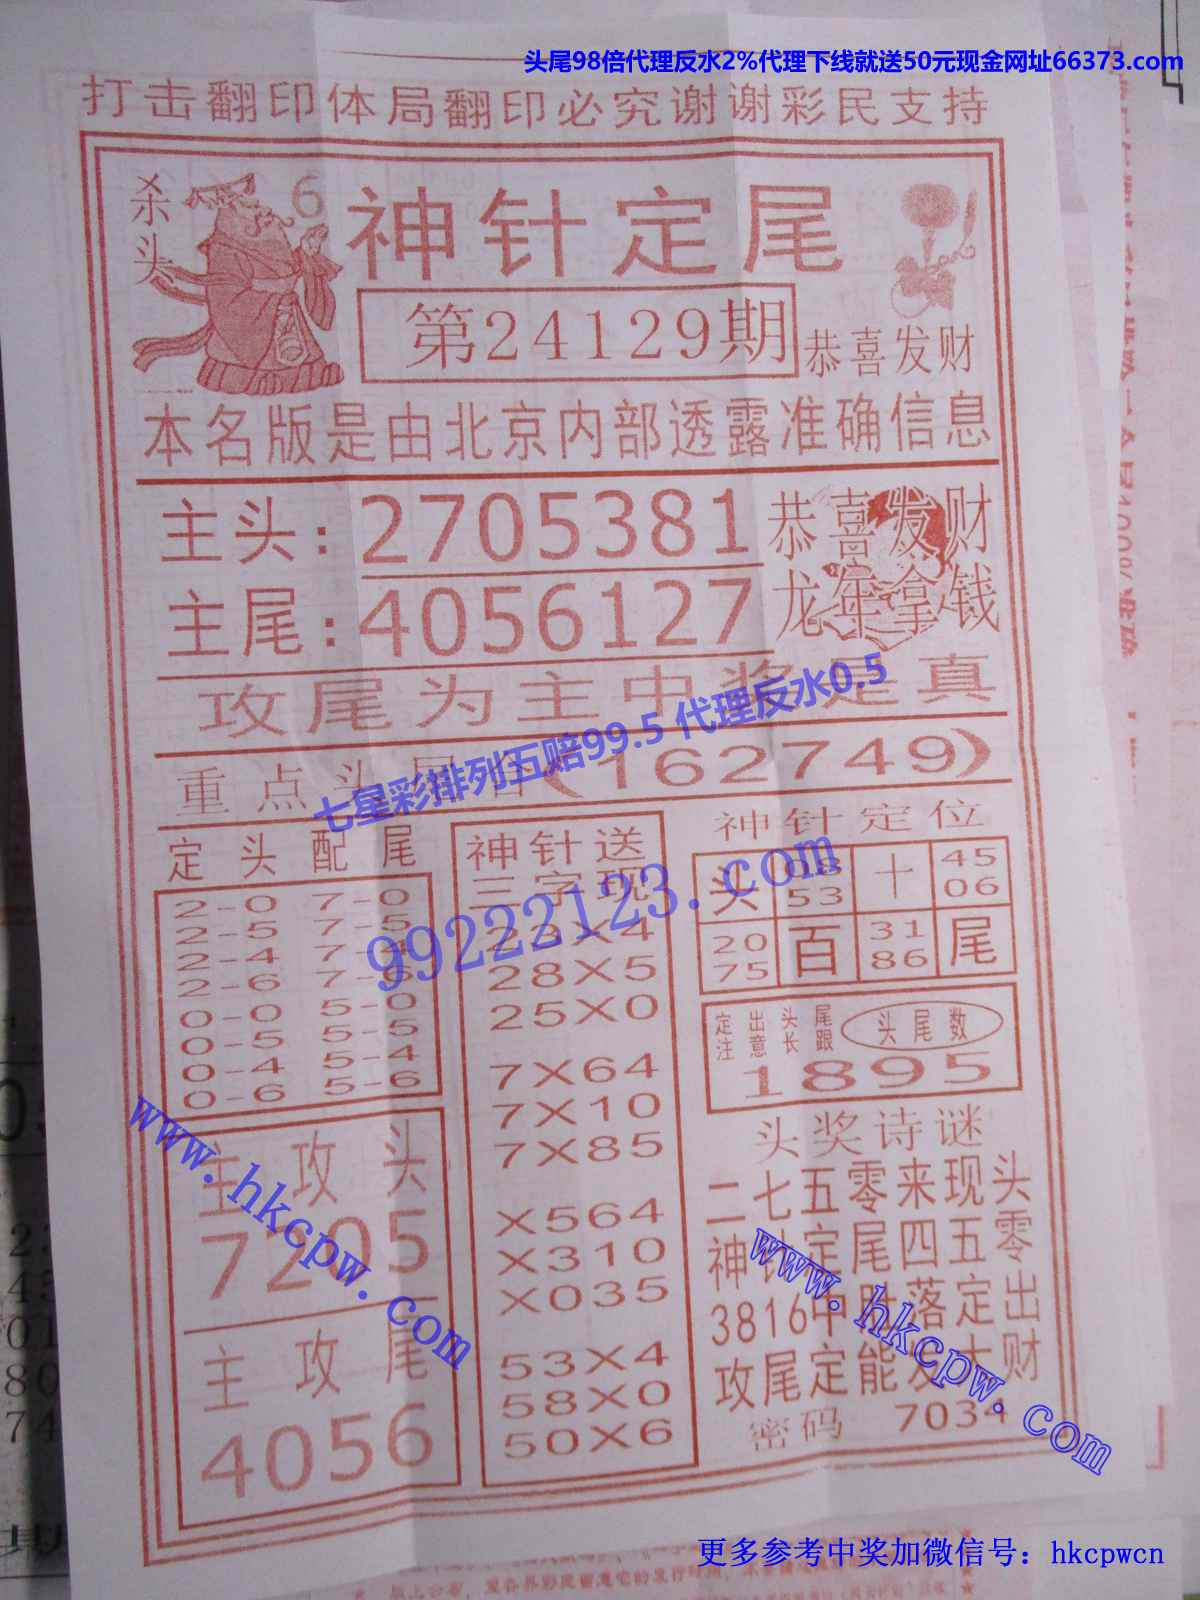 头尾98倍代理反水2%代理下线就送50元现金网址66373.com
打击翻印体局翻印必究谢谢彩民支持
杀头
6
神针定尾
第24129期
恭喜发财
本名版是由北京内部透露准确信息
主头:2705381
恭喜发财
主尾:4056127
龙年拿钱
攻尾为主中奖是真
七星彩排列五赔99.5 代理反水0.5
重点头尾(162749)
定头配尾
2-0 7-0
2-5 7-5
2-4 7-4
2-6 7-6
0-0 5-0
0-5 5-5
0-4 5-4
0-6 5-6
主攻头
7205
主攻尾
4056
神针送
三字现
23X4
28X5
25X0
7X64
7X10
7X85
X564
X310
X035
53X4
58X0
50X6
99222123.com
神针定位
头 08 十 45
53 06
20 百 31 尾
75 86
定出头尾
注意长跟
头尾数
1895
头奖诗谜
二七五零来现头
神针定尾四五零
3816中胜落定出
攻尾定能发大财
密码 7034
www.hkcpw.com
www.hkcpw.com
更多参考中奖加微信号：hkcpwcn